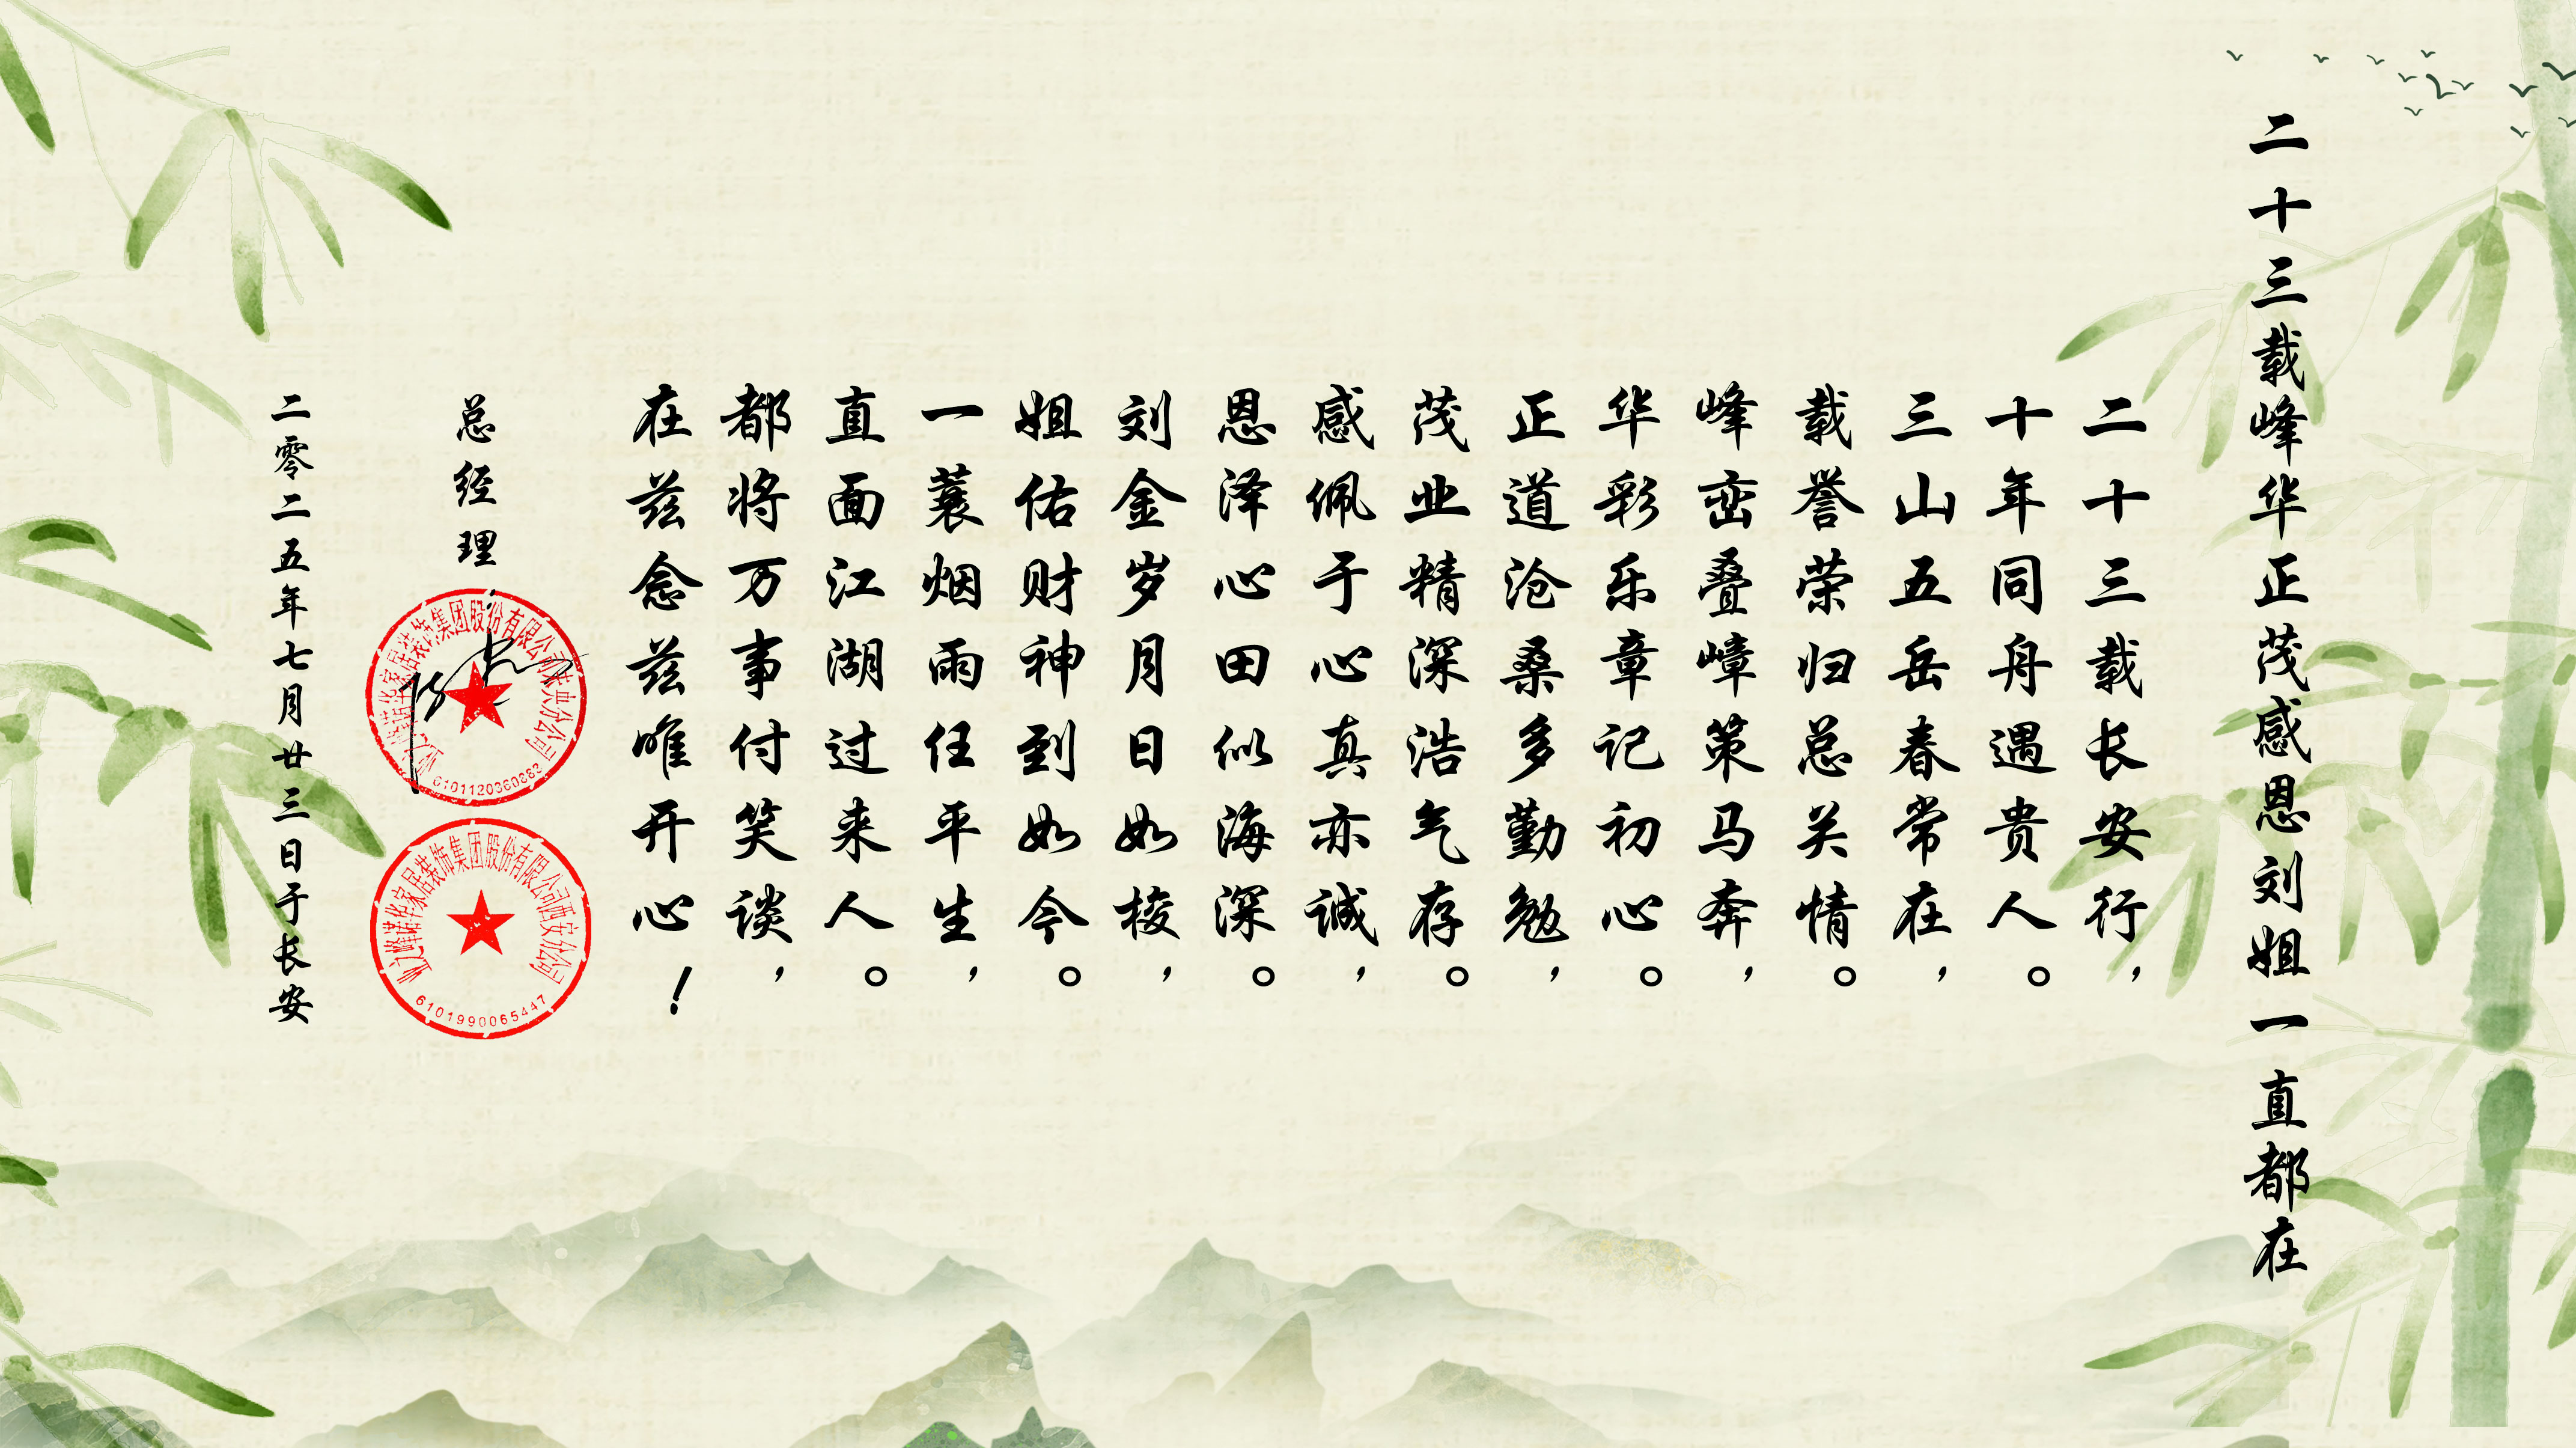 二十三载峰华正茂感恩刘姐一直都在
二十三载长安行，
十年同舟遇贵人。
三山五岳春常在，
载誉荣归总关情。
峰峦叠嶂策马奔，
华彩乐章记初心。
正道沧桑多勤勉，
茂业精深浩气存。
感佩于心真亦诚，
恩泽心田似海深。
刘金岁月日如梭，
姐佑财神到如今。
一蓑烟雨任平生，
直面江湖过来人。
都将万事付笑谈，
在兹念兹唯开心！
总经理：
业之峰诺华家居装饰集团股份有限公司西安分公司
6101990065447
二零二五年七月廿三日于长安